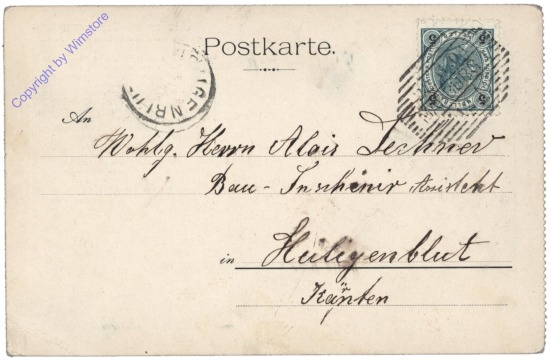 Copyright by Wimstore
Postkarte.
An
Wohlg. Herrn Alois Lechner
Bau - Inschinir Assistent
in Heiligenblut
Kärnten